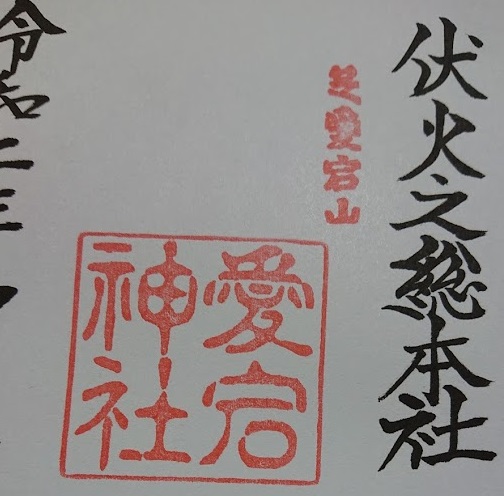 伏火之総本社
芝愛宕山
愛宕
神社
令和二